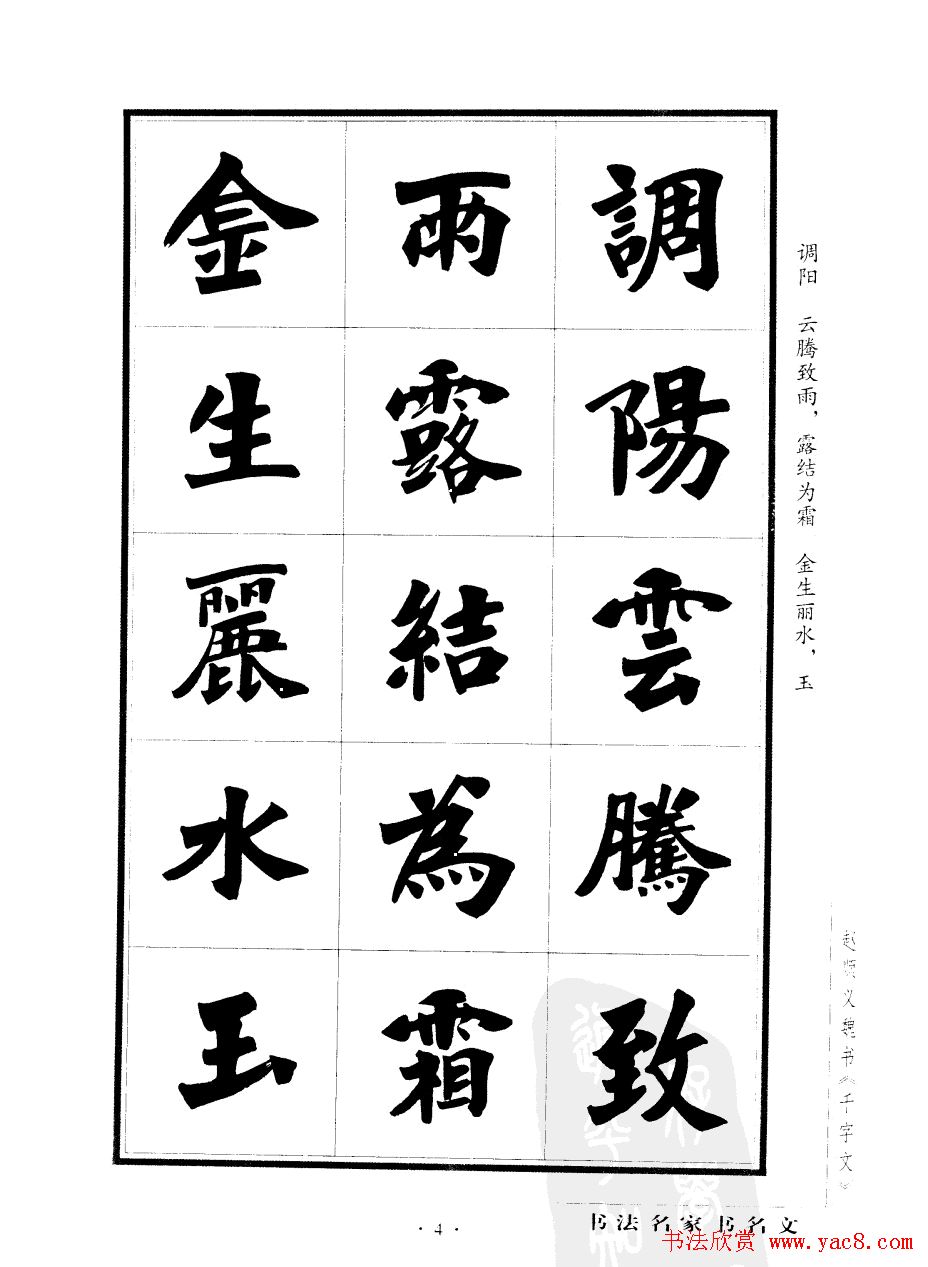 調陽雲騰致
雨露結為霜
金生麗水玉
调阳 云腾致雨，露结为霜 金生丽水，玉
赵顺义魏书《千字文》
·4·
书法名家书名文
书法欣赏 www.yac8.com